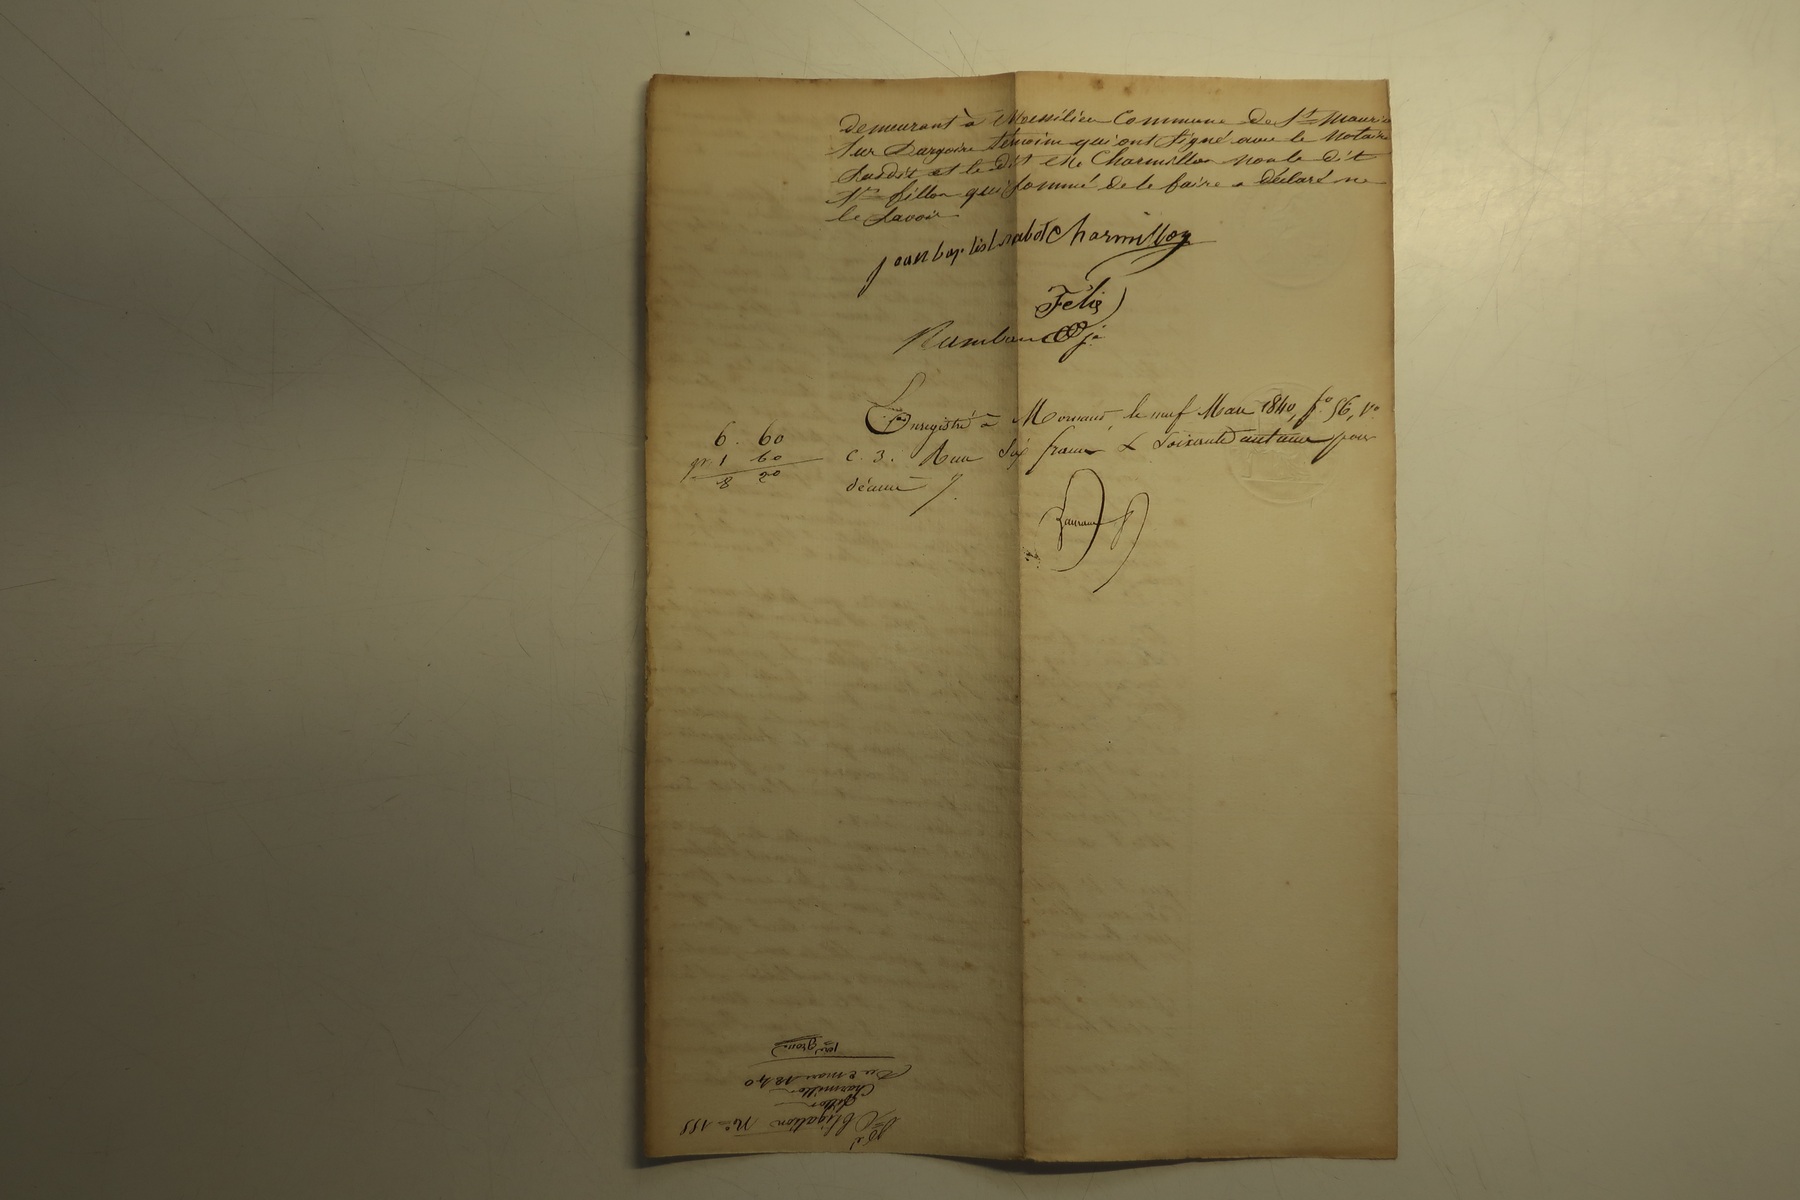 demeurant à Moessilieu Commune de St Maurice
sur Dargoire témoins qui ont signé avec le Notaire
susdit et le dit Me Charmillon non le dit
Sr fillon qui sommé de le faire a déclaré ne
le savoir
jean baptist nabot Charmillon
Félix
Rambaud
Enregistré à Mornant, le neuf Mars 1840, fo 56, Vo
c. 3. Reçu six francs & soixante centimes pour
décime
6. 60
1 60
8 20
Obligation No 155
fillon
Charmillon
Du 8 mars 1840
pre grosse